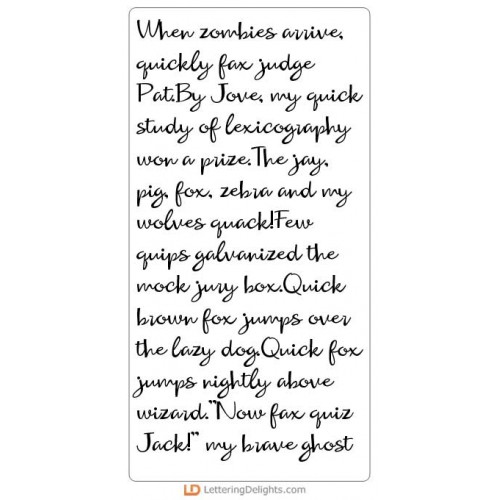 When zombies arrive,
quickly fax judge
Pat.By Jove, my quick
study of lexicography
won a prize.The jay,
pig, fox, zebra and my
wolves quack!Few
quips galvanized the
mock jury box.Quick
brown fox jumps over
the lazy dog.Quick fox
jumps nightly above
wizard."Now fax quiz
Jack!" my brave ghost
LD LetteringDelights.com